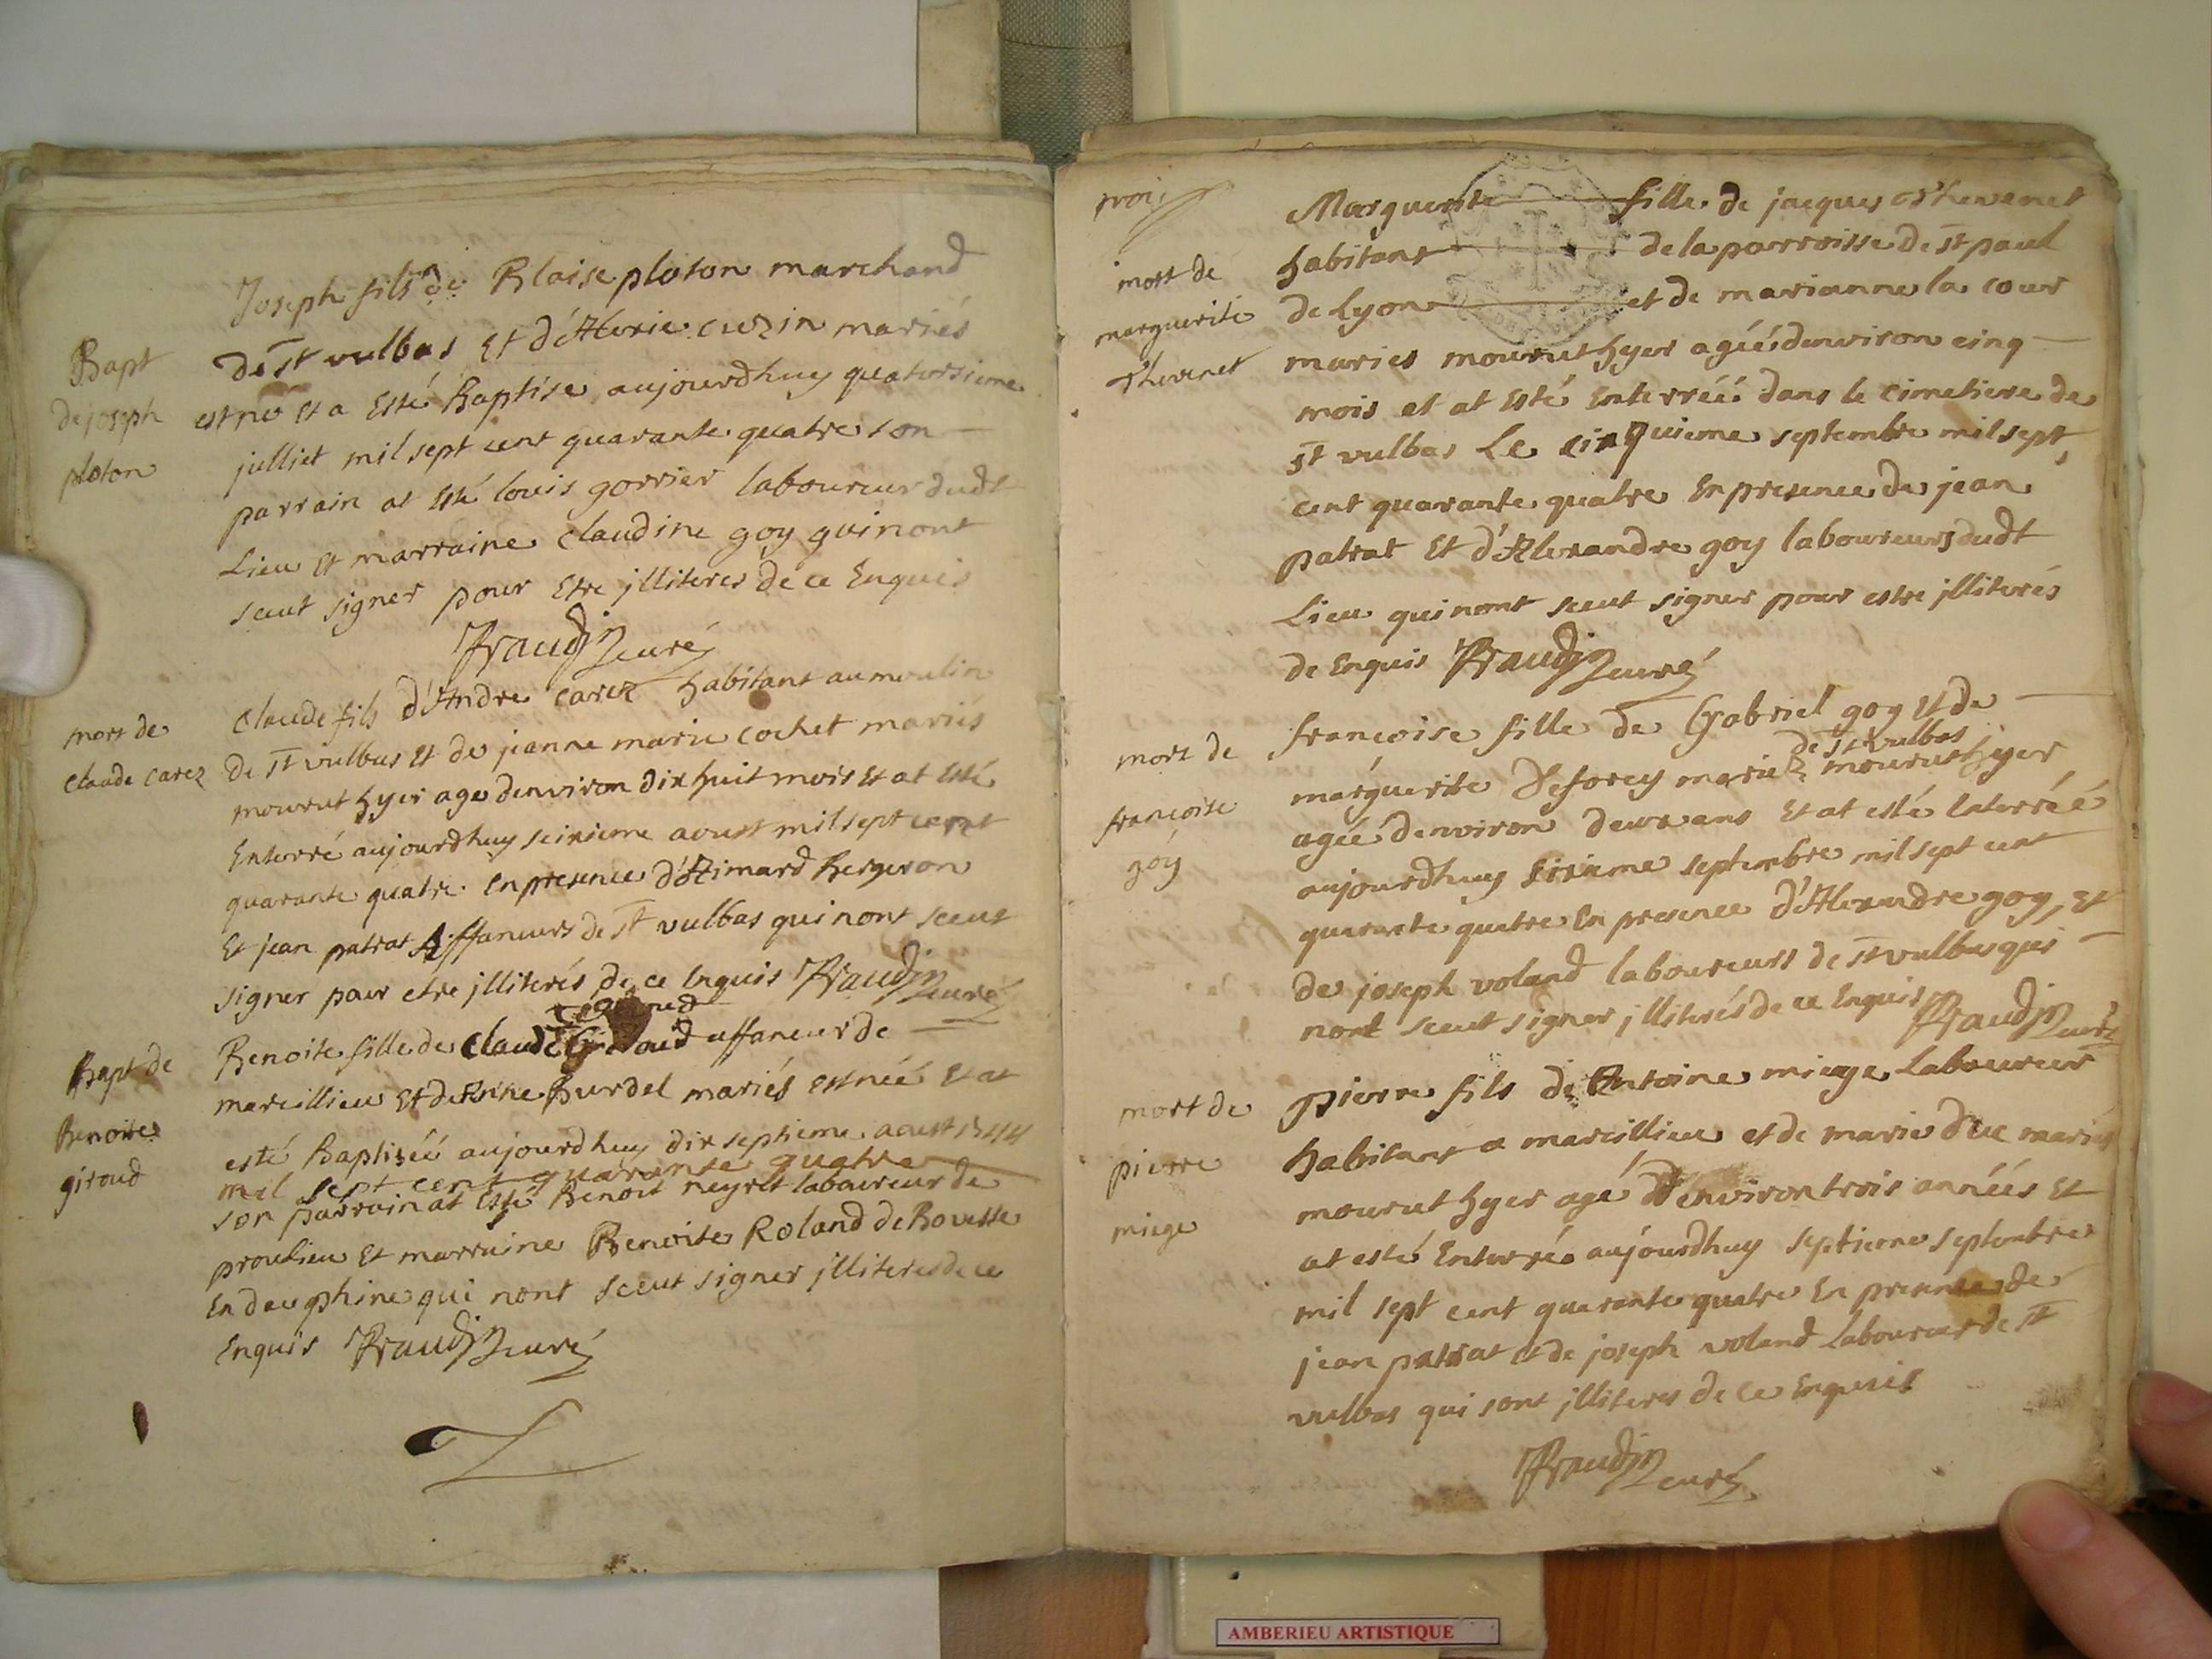 Bapt
de joseph
ploton
Joseph fils de Blaise ploton marchand
de st vulbas et d'Alexie cuzin mariés
est né et a esté Baptise aujourdhuy quatorsieme
julliet mil sept cent quarante quatre son
parrain at esté louis gorrier laboureur dudt
Lieu et marraine Claudine goy qui nont
sceut signer pour Etre jlliteres de ce Enquis
Fraudin curé
mort de
claude carez
Claude fils d'Andre carez habitant au moulin
de st vulbas et de jeanne marie cochet mariés
mourut hyer age denviron dix huit mois et at esté
Enterré aujourdhuy seixieme aoust mil sept cent
quarante quatre En presence d'Aimard Bergeron
et jean patrat Affaneurs de st vulbas qui nont sceut
signer pour etre jlliterés de ce Enquis Fraudin curé
Bapt de
Benoite
giroud
Benoite fille de Claude giroud affaneur de
marcillieu et de Anne Burdel mariés est néé et at
esté Baptiséé aujourdhuy dix septieme aoust 1744
mil sept cent quarante quatre
son parrain at esté Benoit neyret laboureur de
proulieu et marraine Benoite Roland de Bouesse
En dauphine qui nont sceut signer jlliteres de ce
Enquis Fraudin curé
mort de
marguerite
Thevenet
Marguerite fille de jacques Thevenet
habitant de la parroisse de st paul
de Lyon et de marianne la cour
maries mourut hyer agéé denviron cinq
mois et at esté Enterréé dans le cimetiere de
st vulbas Le cinquieme septembre mil sept
cent quarante quatre En presence de jean
patrat et d'Alexandre goy laboureurs dudt
Lieu qui nont sceut signer pour estre jlliterés
de Enquis Fraudin curé
mort de
françoise
goy
françoise fille de Gabriel goy et de
de st vulbas
marguerite Deforey mariez mourut hyer
agéé denviron deux ans et at esté Enterréé
aujourdhuy sixieme septembre mil sept cent
quarante quatre En presence d'Alexandre goy, et
de joseph voland laboureurs de st vulbas qui
nont sceut signer jlliterés de ce Enquis Fraudin curé
mort de
pierre
miege
pierre fils de Antoine miege Laboureur
habitant a marcillieu et de marie duc mariés
mourut hyer agé d'environ trois années et
at esté Enterré aujourdhuy septieme septembre
mil sept cent quarante quatre En presence de
jean patrat et de joseph voland Laboureur de st
vulbas qui sont jlliteres de ce Enquis
Fraudin curé
AMBERIEU ARTISTIQUE